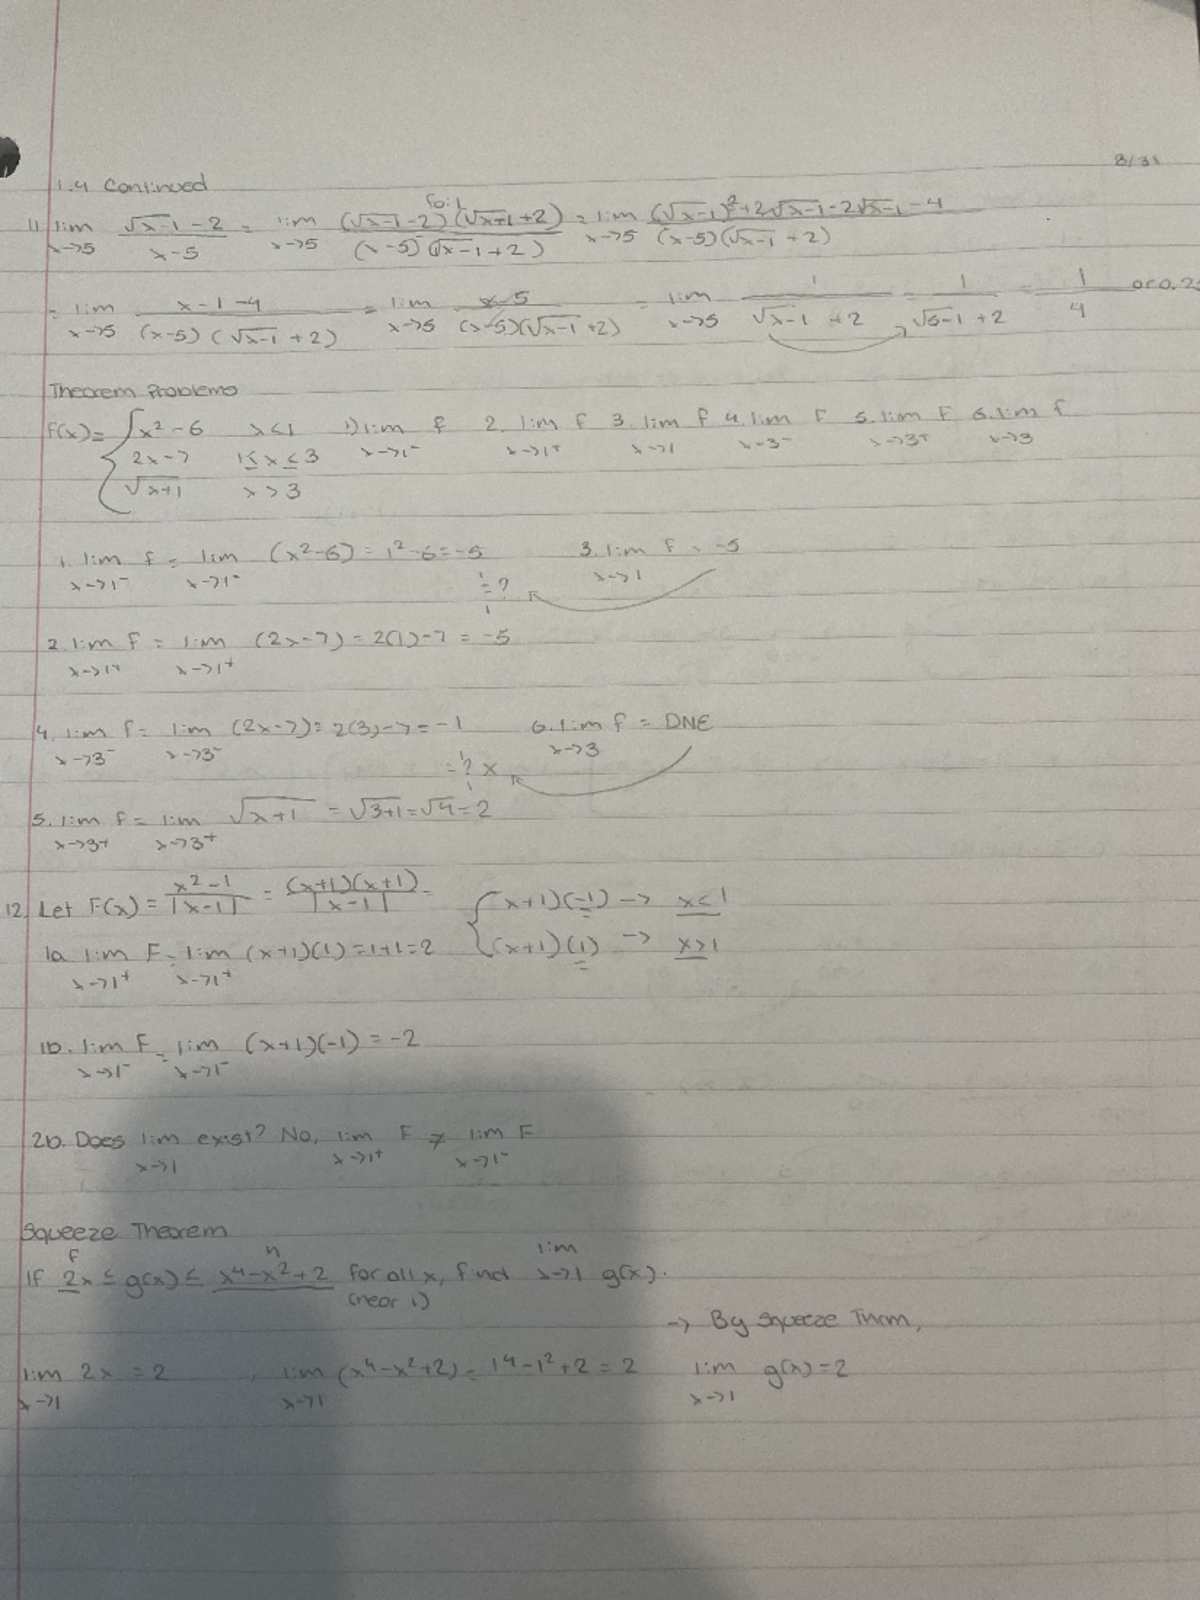 8/31
1.4 Continued
foil
11. lim x→5 (√x-1 - 2)/(x-5) = lim x→5 (√x-1 - 2)(√x+1 + 2)/(x-5)(√x-1 + 2) = lim x→5 ((√x-1)² + 2√x-1 - 2√x-1 - 4)/(x-5)(√x-1 + 2)
= lim x→5 (x-1-4)/(x-5)(√x-1 + 2) = lim x→5 (x-5)/(x-5)(√x-1 + 2) = lim x→5 1/(√x-1 + 2) = 1/(√5-1 + 2) = 1/4 or 0.2
Theorem Problems
F(x) = { x²-6 x<1 1) lim x→1⁻ f 2. lim x→1⁺ f 3. lim x→1 f 4. lim x→3⁻ F 5. lim x→3⁺ F 6. lim x→3 f
2x-7 1≤x≤3
√x+1 x>3
1. lim x→1⁻ f = lim x→1⁻ (x²-6) = 1²-6 = -5 3. lim x→1 F = -5
=?
2. lim x→1⁺ f = lim x→1⁺ (2x-7) = 2(1)-7 = -5
4. lim x→3⁻ f = lim x→3⁻ (2x-7) = 2(3)-7 = -1 6. lim x→3 f = DNE
=? x
5. lim x→3⁺ f = lim x→3⁺ √x+1 = √3+1 = √4 = 2
12. Let F(x) = (x²-1)/|x-1| = (x+1)(x+1)/|x-1| = { (x+1)(-1) → x<1
(x+1)(1) → x>1
1a. lim x→1⁺ F = lim x→1⁺ (x+1)(1) = 1+1 = 2
1b. lim x→1⁻ F = lim x→1⁻ (x+1)(-1) = -2
2b. Does lim x→1 exist? No, lim x→1⁺ F ≠ lim x→1⁻ F
Squeeze Theorem
f h
If 2x ≤ g(x) ≤ x⁴-x²+2 for all x, find lim x→1 g(x).
(near 1)
→ By Squeeze Thrm,
lim x→1 2x = 2 , lim x→1 (x⁴-x²+2) = 1⁴-1²+2 = 2 lim x→1 g(x) = 2